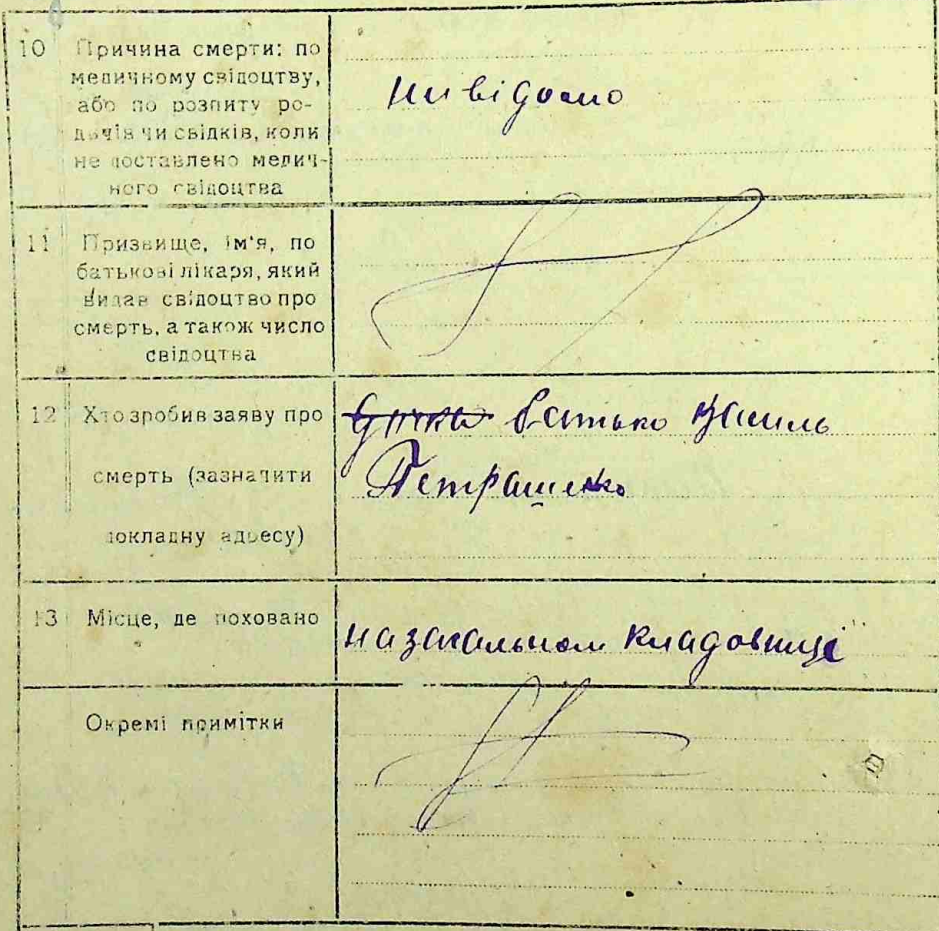 10 Причина смерти: по
медичному свідоцтву,
або по розпиту ро-
дичів чи свідків, коли
не поставлено медич-
ного свідоцтва
нивідомо
11 Призвище, ім'я, по
батькові лікаря, який
видав свідоцтво про
смерть, а також число
свідоцтва
12 Хто зробив заяву про
смерть (зазначити
докладну адресу)
дочка батько Василь
Петрашенко
13 Місце, де поховано
на загальном кладовищі
Окремі примітки